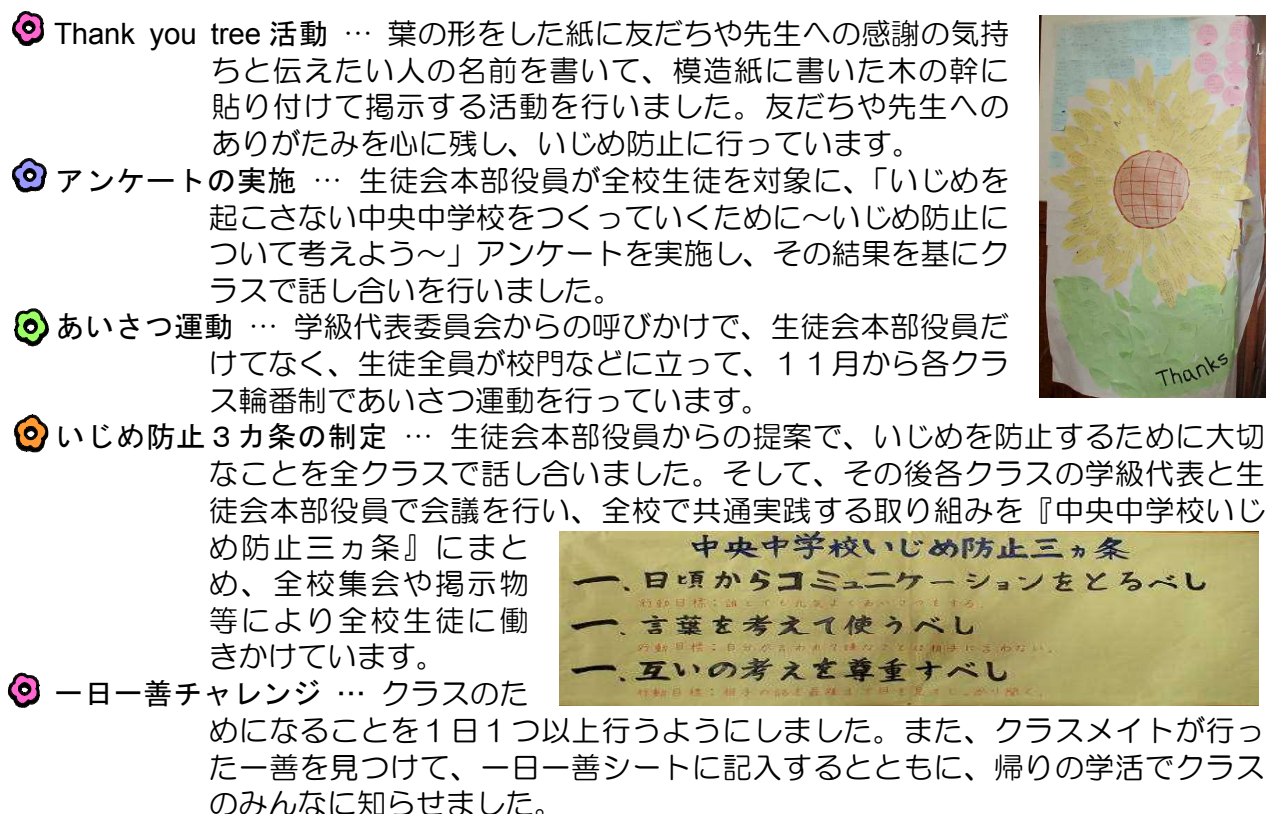 Thank you tree 活動 … 葉の形をした紙に友だちや先生への感謝の気持
ちと伝えたい人の名前を書いて、模造紙に書いた木の幹に
貼り付けて掲示する活動を行いました。友だちや先生への
ありがたみを心に残し、いじめ防止に行っています。
アンケートの実施 … 生徒会本部役員が全校生徒を対象に、「いじめを
起こさない中央中学校をつくっていくために～いじめ防止に
ついて考えよう～」アンケートを実施し、その結果を基にク
ラスで話し合いを行いました。
あいさつ運動 … 学級代表委員会からの呼びかけで、生徒会本部役員だ
けてなく、生徒全員が校門などに立って、１１月から各クラ
ス輪番制であいさつ運動を行っています。
Thanks
いじめ防止３カ条の制定 … 生徒会本部役員からの提案で、いじめを防止するために大切
なことを全クラスで話し合いました。そして、その後各クラスの学級代表と生
徒会本部役員で会議を行い、全校で共通実践する取り組みを『中央中学校いじ
め防止三ヵ条』にまと
め、全校集会や掲示物
等により全校生徒に働
きかけています。
中央中学校いじめ防止三ヵ条
一、日頃からコミュニケーションをとるべし
行動目標：誰とでも元気よくあいさつをする。
一、言葉を考えて使うべし
行動目標：自分が言われて嫌なことは相手に言わない。
一、互いの考えを尊重すべし
行動目標：相手の話を最後まで目を見てしっかり聞く。
一日一善チャレンジ … クラスのた
めになることを１日１つ以上行うようにしました。また、クラスメイトが行っ
た一善を見つけて、一日一善シートに記入するとともに、帰りの学活でクラス
のみんなに知らせました。